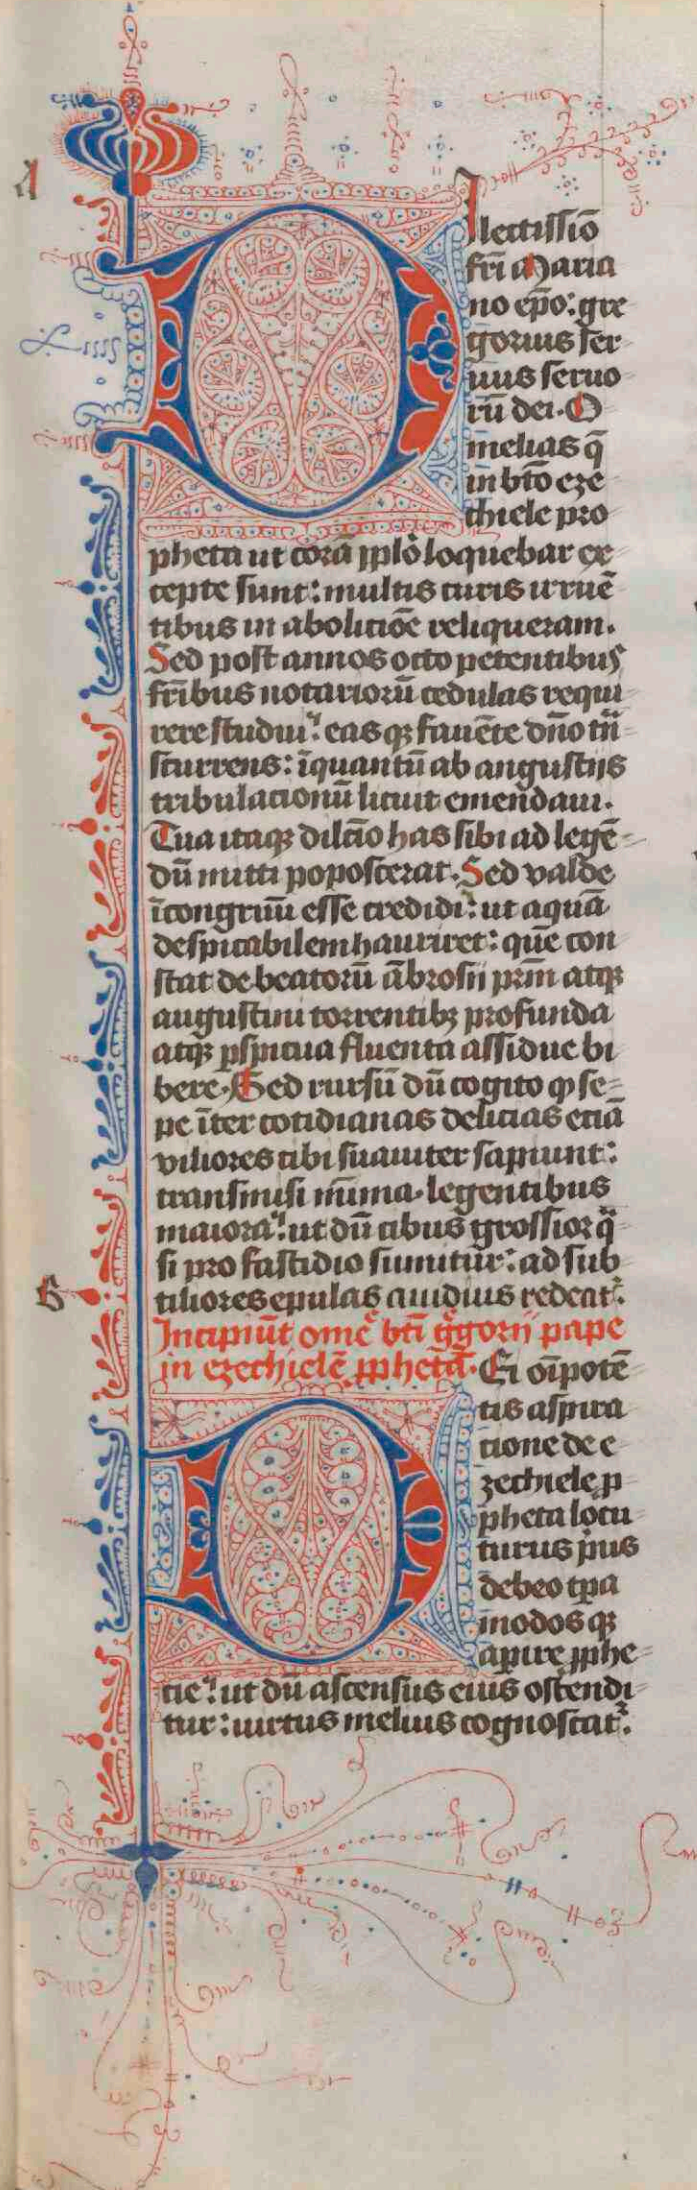 A
DIlectissīo
fr̄i Maria
no ep̄o: gre
gorius ser
uus seruo
rū dei. O
melias q̄
in bt̄o eze
chiele pro
pheta ut corā ꝓplo loquebar ex
cepte sunt: multis curis irruē
tibus in abolicīoe reliqueram.
Sed post annos octo petentibus
fr̄ibus notariorū cedulas requi
rere studui: eas qꝫ fauēte dn̄o tn̄
scurrens: īquantū ab angustijs
tribulacionū licuit emendaui.
Tua itaqꝫ dilc̄io has sibi ad legē
dū mitti poposcerat. Sed valde
īcongruū esse credidi: ut aquā
despicabilem hauriret: quē con
stat de beatorū ābrosii pr̄m atqꝫ
augustini torrentibꝫ profunda
atqꝫ ꝑspicua fluenta assidue bi
bere. Sed rursū dū cogito ꝙ se
pe īter cotidianas delicias eciā
viliores cibi suauiter sapiunt:
transmisi mīma legentibus
maiora: ut dū cibus grossior q̄
si pro fastidio sumitur: ad sub
tiliores epulas auidius redeat᷑.
Incipiūt ome᷑ bt̄i g̊gorii pape
in ezechielē ꝓphetā. DEi oīpotē
B
tis aspira
cione de e
zechiele ꝓ
pheta locu
turus p̄us
debeo tp̄a
modos qꝫ
aꝑire ꝓphe
cie: ut dū ascensus eius ostendi
tur: uirtus melius cognoscat᷑.